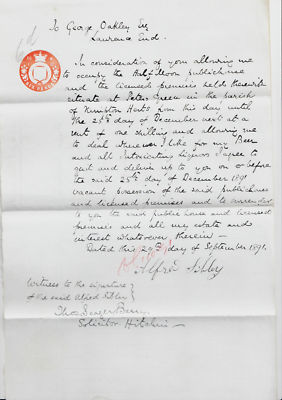 To George Oakley Esq
Laurence End
6d
In consideration of you allowing me
to occupy the Half Moon publichouse
and the licensed premises held therewith
situate at Peters Green in the parish
of Kimpton Herts from this day until
the 25th day of December next at a
rent of one shilling and allowing me
to deal wherever I like for my Beer
and all Intoxicating liquors I agree to
quit and deliver up to you on or before
the said 25th day of December 1891
vacant possession of the said publichouse
and licensed premises and to surrender
to you the said public house and licensed
premises and all my estate and
interest whatsoever therein —
Dated this 29th day of September 1891.
Alfred
Witness to the signature
of the said Alfred
Solicitor Hitchin